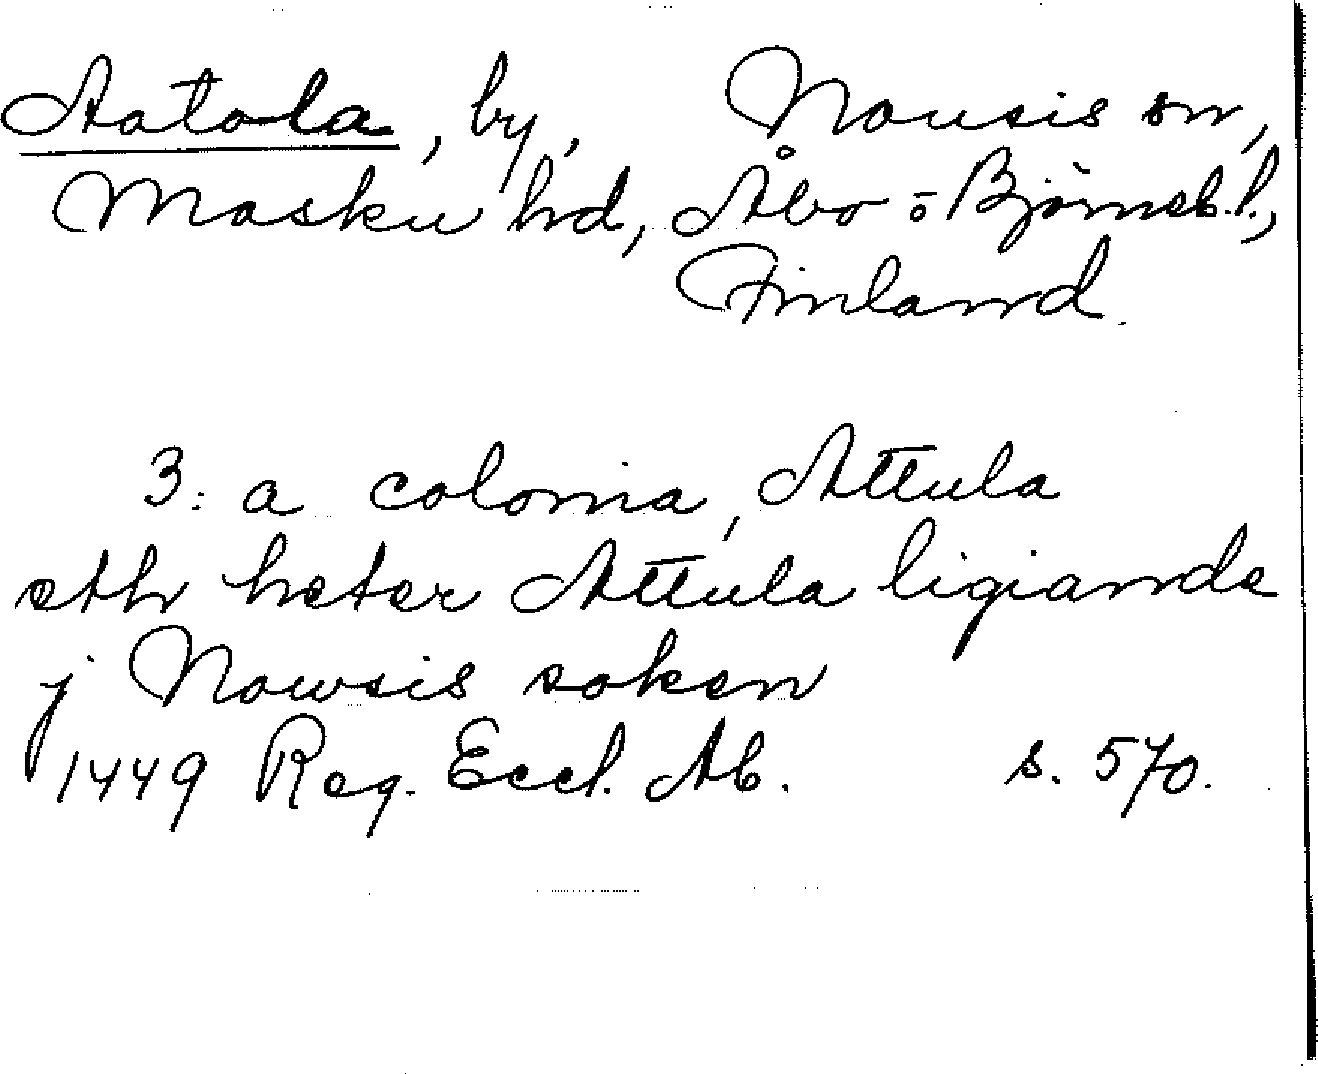 Aatola, by, Nousis sn,
Masku hd, Åbo o Björneb. l.,
Finland.
3: a colonia, Attula
eth heter Attula ligiande
j Nowsis soken
1449 Reg. Eccl. Ab. s. 570.